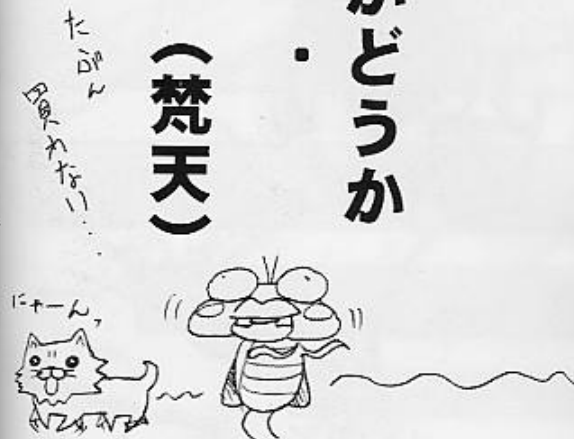 がどうか
・
（梵天）
たぶん
買わない・・・
にゃーん